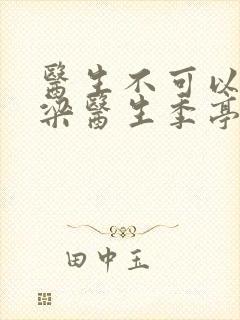 醫生不可以
梁醫生季亭
田中玉